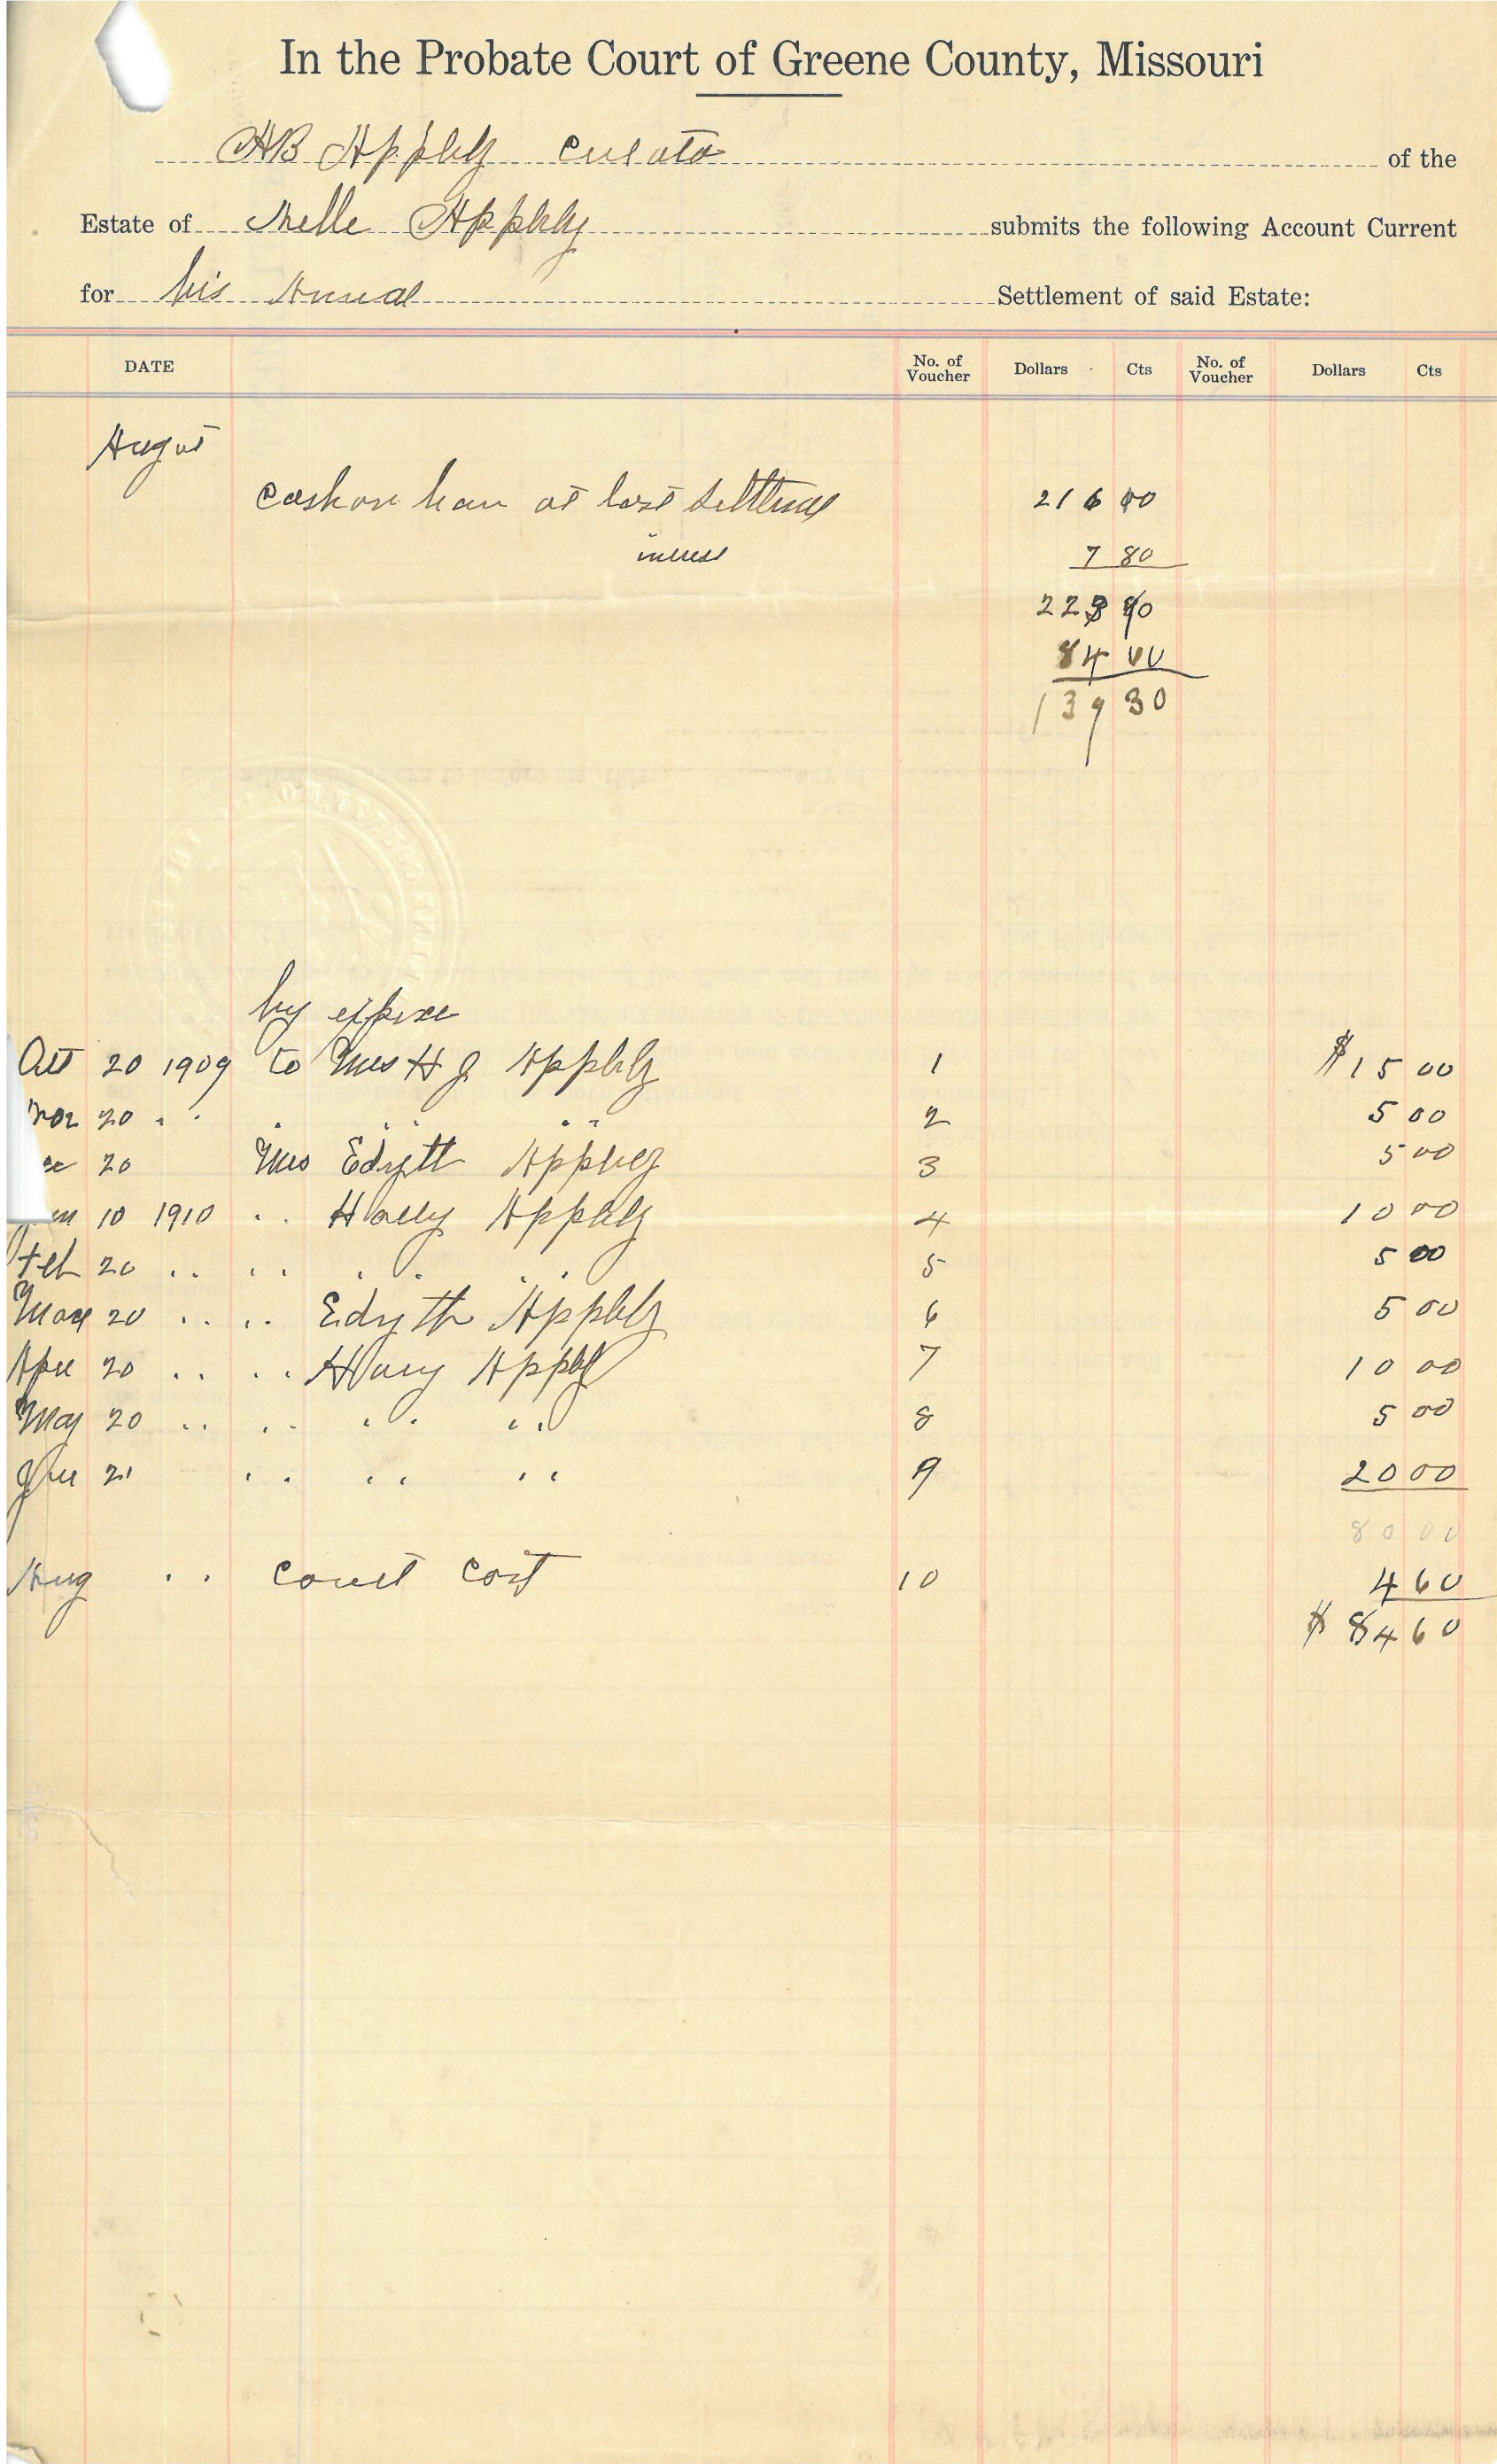 In the Probate Court of Greene County, Missouri
HB Appleby Curato of the
Estate of Nelle Appleby submits the following Account Current
for his Annual Settlement of said Estate:
DATE No. of Voucher Dollars Cts No. of Voucher Dollars Cts
August
Cash on han at last Settlement 216
interest 7 80
22
84
139 30
by expense
Oct 20 1909 to Mrs H J Appleby 1 $15 00
Nov 20 " " " " " 2 5 00
ec 20 Mrs Edyth Appleby 3 5 00
an 10 1910 " Harry Appleby 4 10 00
Feb 20 " " " " 5 5 00
Mar 20 " " Edyth Appleby 6 5 00
Apr 20 " " Harry Appleby 7 10 00
May 20 " " " " 8 5 00
June 21 " " " 9 20 00
80 00
Aug " court cost 10 4 60
$ 84 60